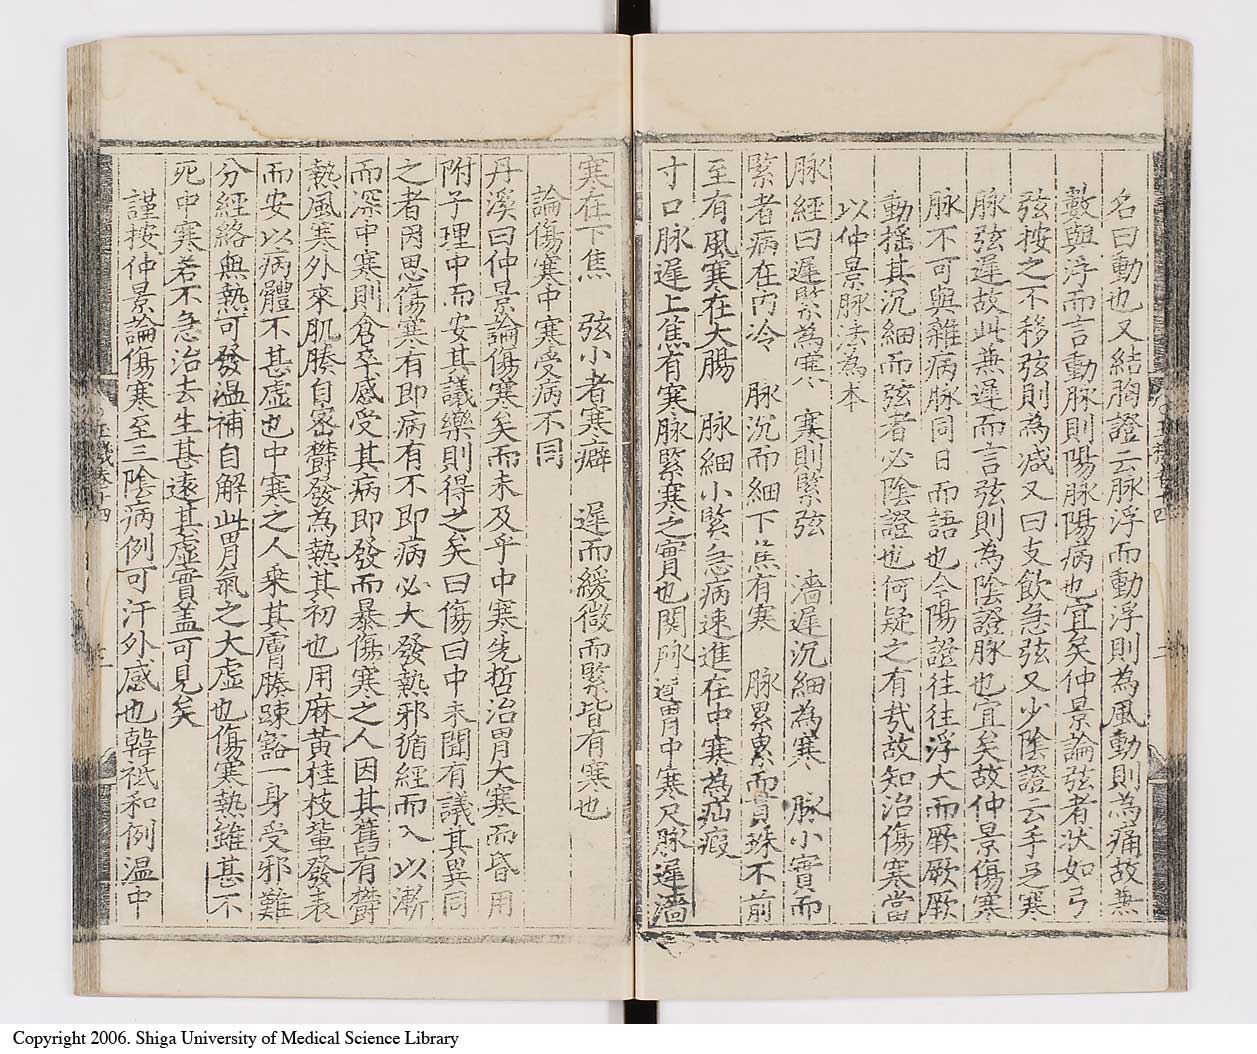 名曰動也又結胸證云脉浮而動浮則為風動則為痛故兼
數與浮而言動脉則陽脉陽病也宜矣仲景論弦者状如弓
弦按之不移弦則為减又曰支飲急弦又少陰證云手足寒
脉弦遲故此兼遲而言弦則為陰證脉也宜矣故仲景傷寒
脉不可與雜病脉同日而語也今陽證往往浮大而厥厥厥
動揺其沉細而弦者必陰證也何疑之有㢤故知治傷寒當
以仲景脉法為本
脉經曰遲緊為寒　寒則緊弦　濇遲沉細為寒　脉小實而
緊者病在内冷　脉沉而細下焦有寒　脉累累而貫珠不前
至有風寒在大腸　脉細小緊急病速進在中寒為疝瘕
寸口脉遲上焦有寒脉緊寒之實也関脉遲胃中寒尺脉遲濇
寒在下焦　弦小者寒癖　遲而緩微而緊皆有寒也
論傷寒中寒受病不同
丹溪曰仲景論傷寒矣而未及乎中寒先哲治胃大寒而昏用
附子理中而安其議藥則得之矣曰傷曰中未聞有議其異同
之者因思傷寒有即病有不即病必大發熱邪循經而入以漸
而深中寒則倉卒感受其病即發而暴傷寒之人因其舊有欝
熱風寒外來肌腠自密欝發為熱其初也用麻黄桂枝軰發表
而安以病體不甚虚也中寒之人乗其膚腠踈豁一身受邪難
分經絡無熱可發温補自解此胃氣之大虚也傷寒熱雖甚不
死中寒若不急治去生甚遠其虚實盖可見矣
謹按仲景論傷寒至三陰病例可汗外感也韓祗和例温中